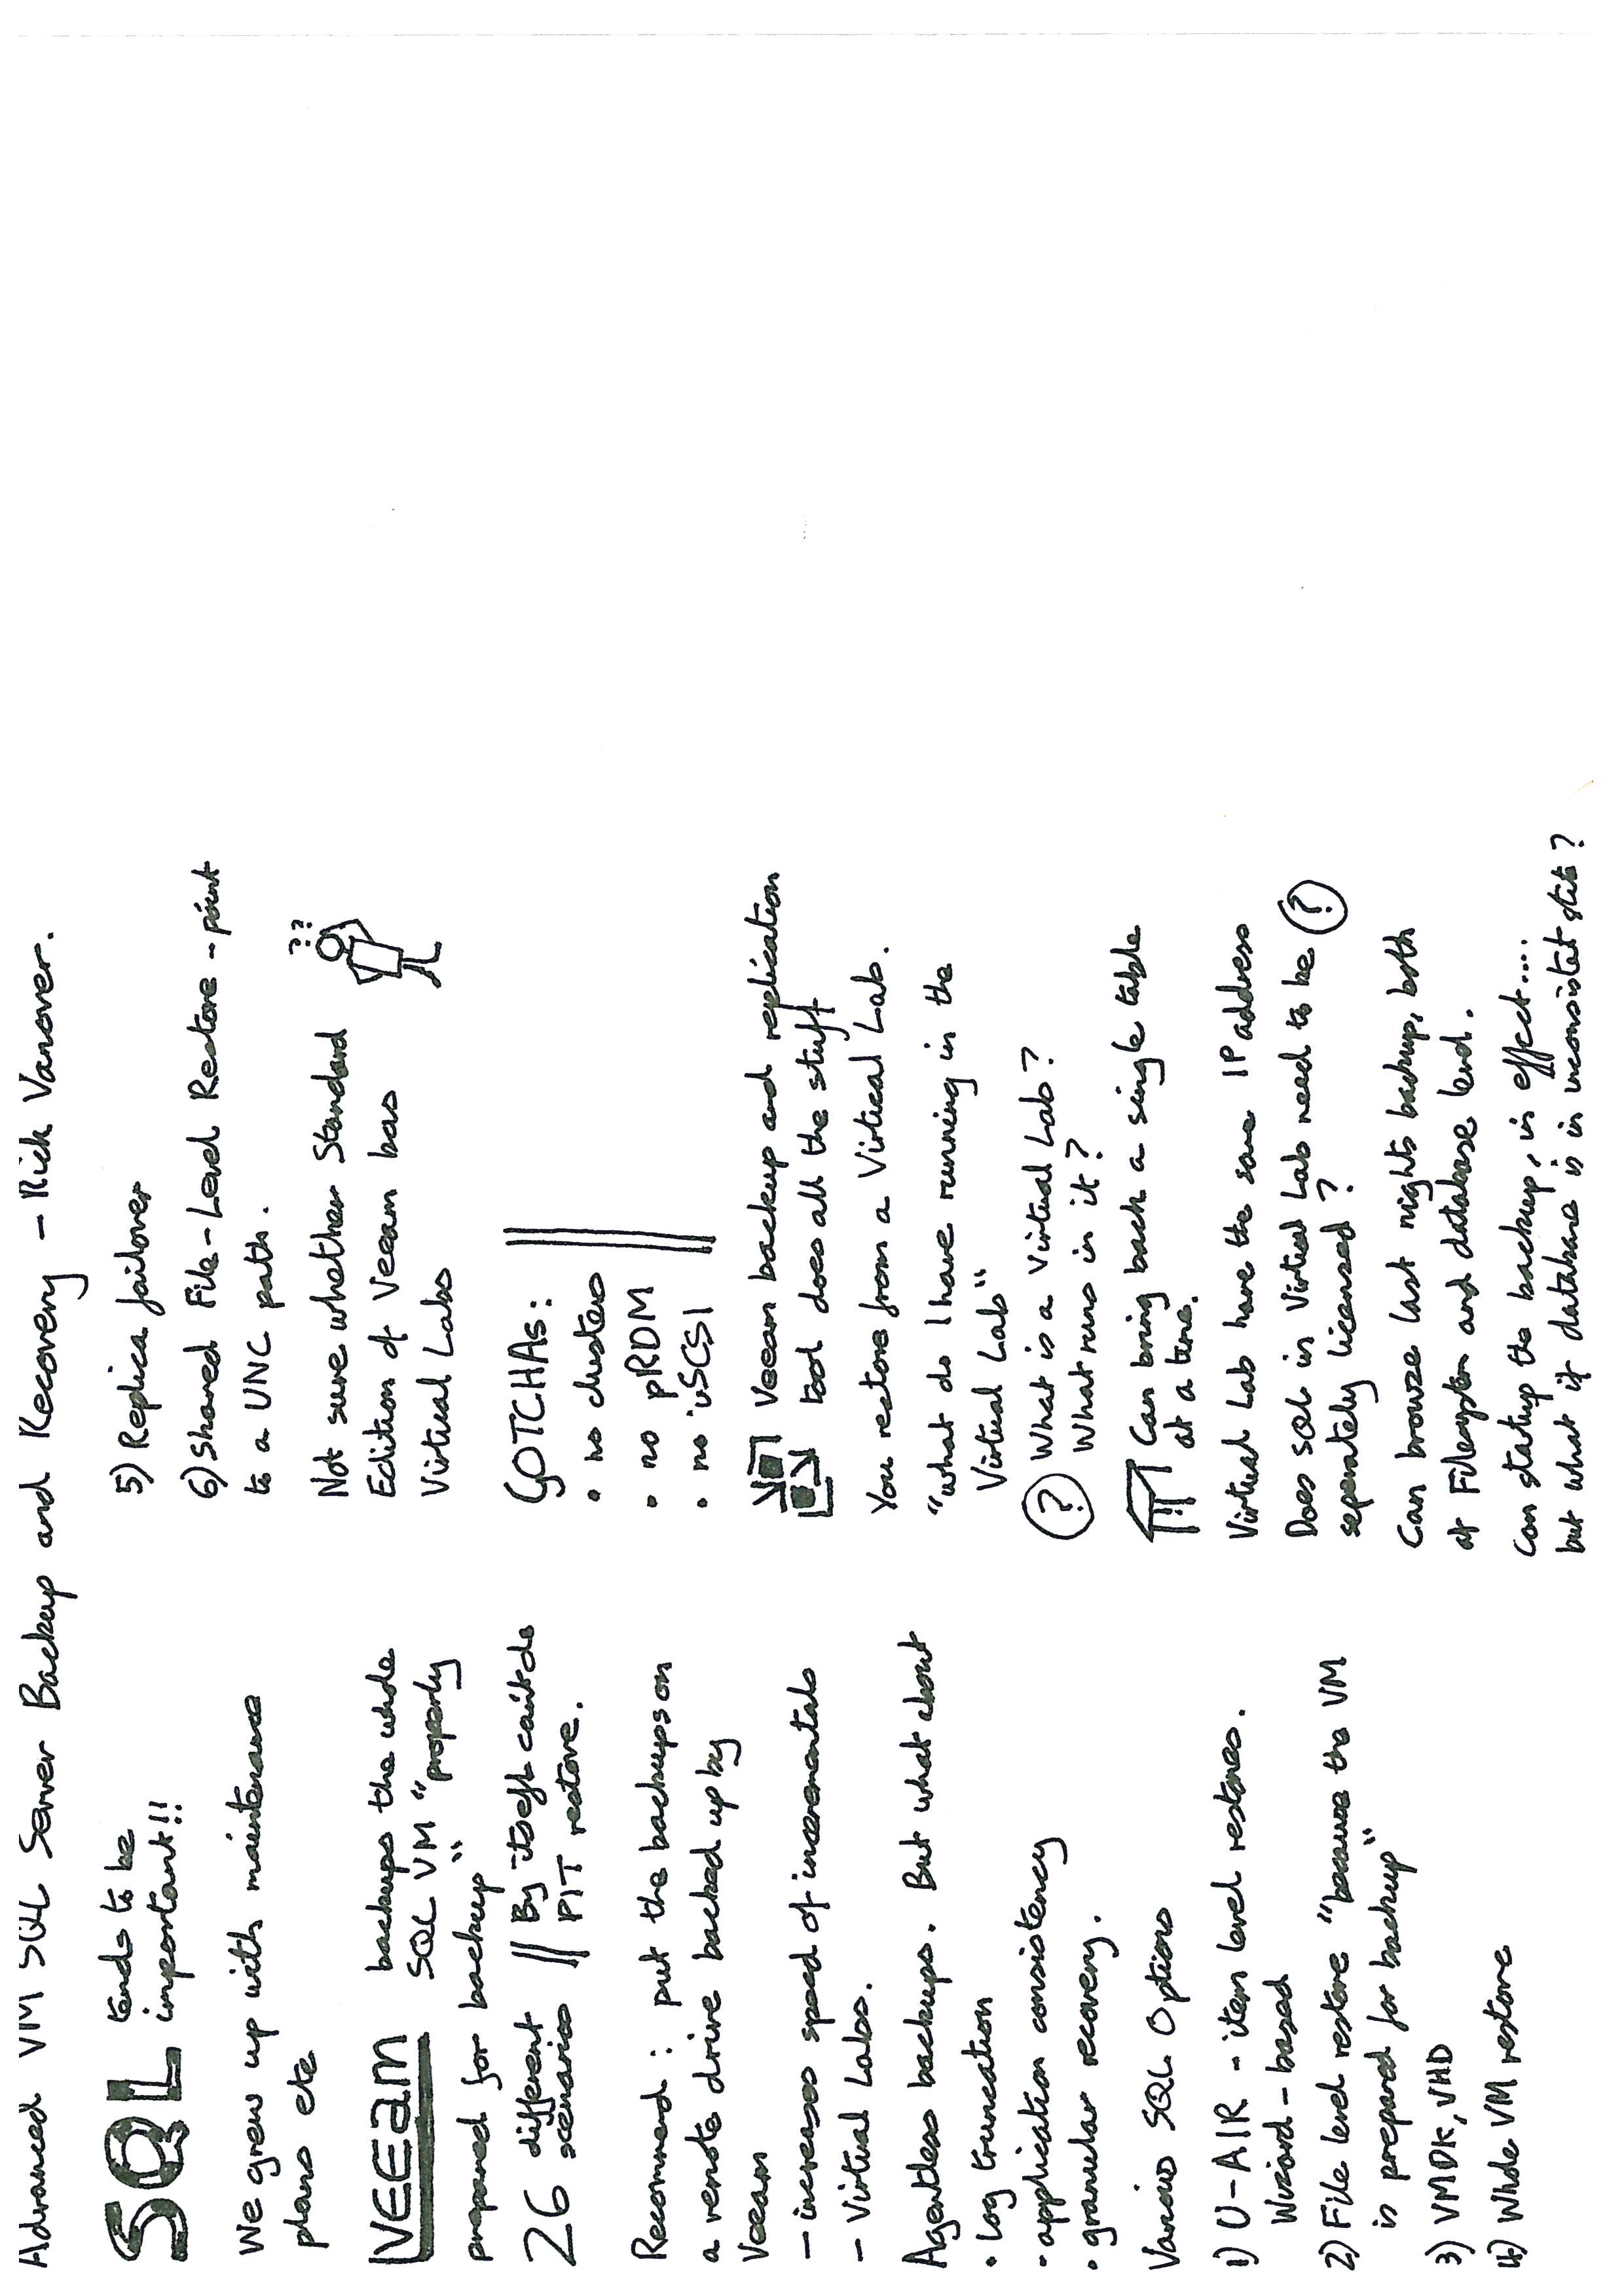 Advanced VM SQL Server Backup and Recovery - Rick Vanover.
SQL tends to be
important!!
We grew up with maintenance
plans etc
veeam backups the whole
SQL VM "properly
prepared for backup"
26 different
scenarios
By itself can't do
PIT restore.
Recommend : put the backups on
a remote drive backed up by
Veeam
- increases speed of incrementals
- Virtual Labs.
Agentless backups. But what about
• log truncation
• application consistency
• granular recovery.
Various SQL Options
1) U-AIR - item level restores.
Wizard-based
2) File level restore "because the VM
is prepared for backup"
3) VMDK, VHD
4) Whole VM restore
5) Replica failover
6) Shared File-Level Restore - point
to a UNC path.
??
Not sure whether Standard
Edition of Veeam has
Virtual Labs
GOTCHAs:
• no clusters
• no pRDM
• no iSCSI
Veeam backup and replication
tool does all the stuff
You restore from a Virtual Lab.
"what do I have running in the
Virtual Lab"
? What is a Virtual Lab?
What runs in it?
Can bring back a single table
at a time.
Virtual Lab have the same IP address
Does SQL in Virtual Lab need to be ?
seperately licensed?
Can browze last nights backup, both
at Filesystem and database level.
Can startup the backup, in effect....
but what if database is in inconsistent state?